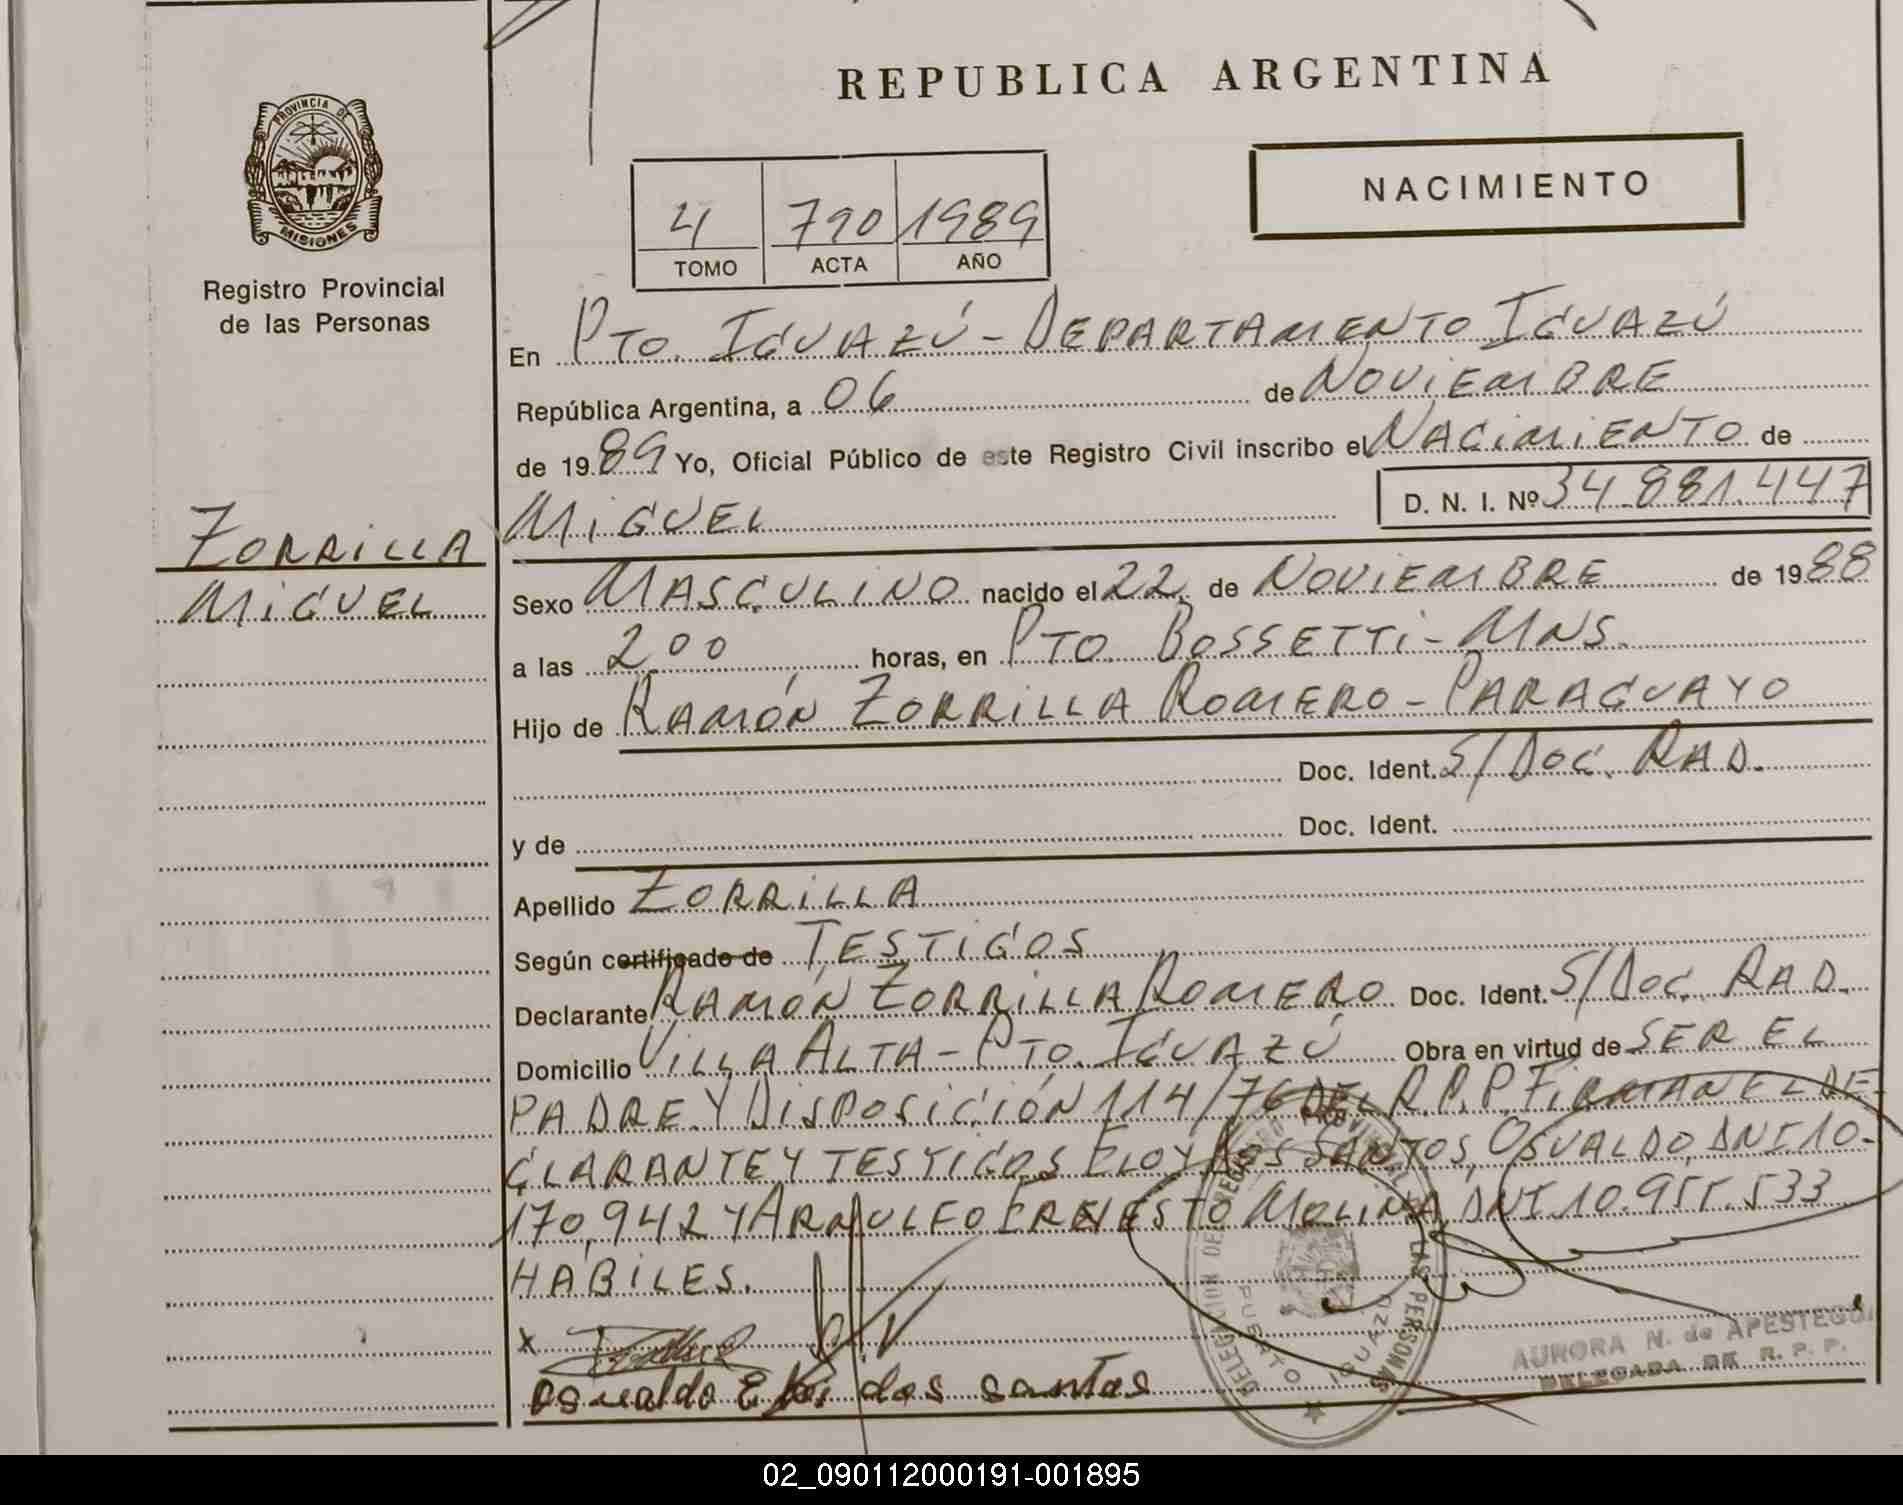 REPUBLICA ARGENTINA
PROVINCIA DE
MISIONES
Registro Provincial
de las Personas
NACIMIENTO
4 790 1989
TOMO ACTA AÑO
En PTO. IGUAZÚ - DEPARTAMENTO IGUAZÚ
República Argentina, a 06 de NOVIEMBRE
de 1989 Yo, Oficial Público de este Registro Civil inscribo el NACIMIENTO de
MIGUEL D. N. I. Nº 34.881.447
ZORRILLA
MIGUEL
Sexo MASCULINO nacido el 22 de NOVIEMBRE de 1988
a las 2,00 horas, en PTO. BOSSETTI - MNS.
Hijo de RAMÓN ZORRILLA ROMERO - PARAGUAYO
Doc. Ident. S/DOC. RAD.
y de Doc. Ident.
Apellido ZORRILLA
Según certificado de TESTIGOS
Declarante RAMÓN ZORRILLA ROMERO Doc. Ident. S/DOC. RAD.
Domicilio VILLA ALTA - PTO. IGUAZÚ Obra en virtud de SER EL
PADRE Y DISPOSICIÓN 114/76 DEL R.P.P. FIRMAN EL DE-
CLARANTE Y TESTIGOS ELOY DOS SANTOS, OSVALDO, DNI 10-
170,942 Y ARNULFO ERNESTO MOLINA, DNI 10.955.533
HABILES.
x
Osvaldo Eloi dos santos
DELEGACION DE REGISTRO PROVINCIAL DE LAS PERSONAS
PUERTO IGUAZU
AURORA N. de APESTEGUI
DELEGADA DE R. P. P.
02_090112000191-001895